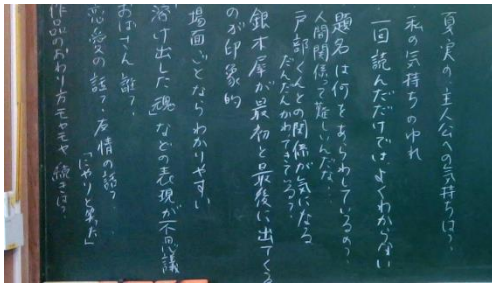 夏実の主人公への気持ちは?
私の気持ちのゆれ
一回読んだだけではよくわからない
題名は何をあらわしているの?
人間関係って難しいんだな…
戸部くんとの関係が気になる
だんだんかわってきている?
銀木犀が最初と最後に出てくる
のが印象的
場面ごとならわかりやすい
「溶け出した魂」などの表現が不思議
おばさん誰?
恋愛の話?友情の話?
「にやりと笑った」
作品のおわり方モヤモヤ 続きは?